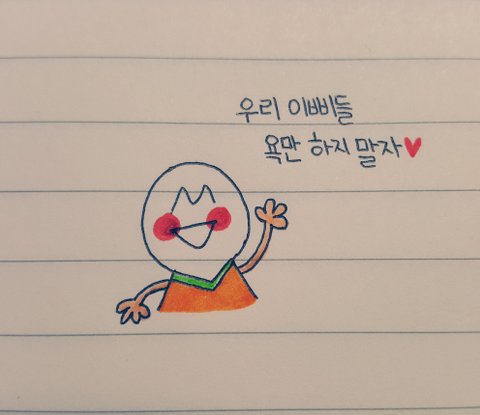 우리 이삐들
욕만 하지 말자♥